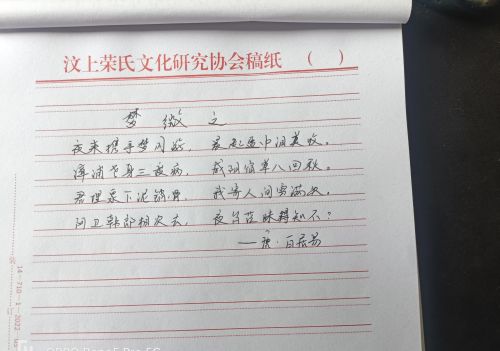 汶上荣氏文化研究协会稿纸 ( )
梦 微 之
夜来携手梦同游 晨起盈中泪莫收。
漳浦老身三度病 咸阳宿草八回秋。
君埋泉下泥销骨 我寄人间雪满头。
阿卫韩郎相次去 夜台茫昧得知不?
——唐·白居易
14-710-1-2022